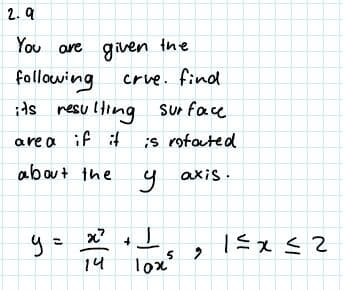 2. a
You are given the
following crve. find
its resulting surface
area if it is rotated
about the y axis.
y = x⁷/14 + 1/10x⁵ , 1 ≤ x ≤ 2